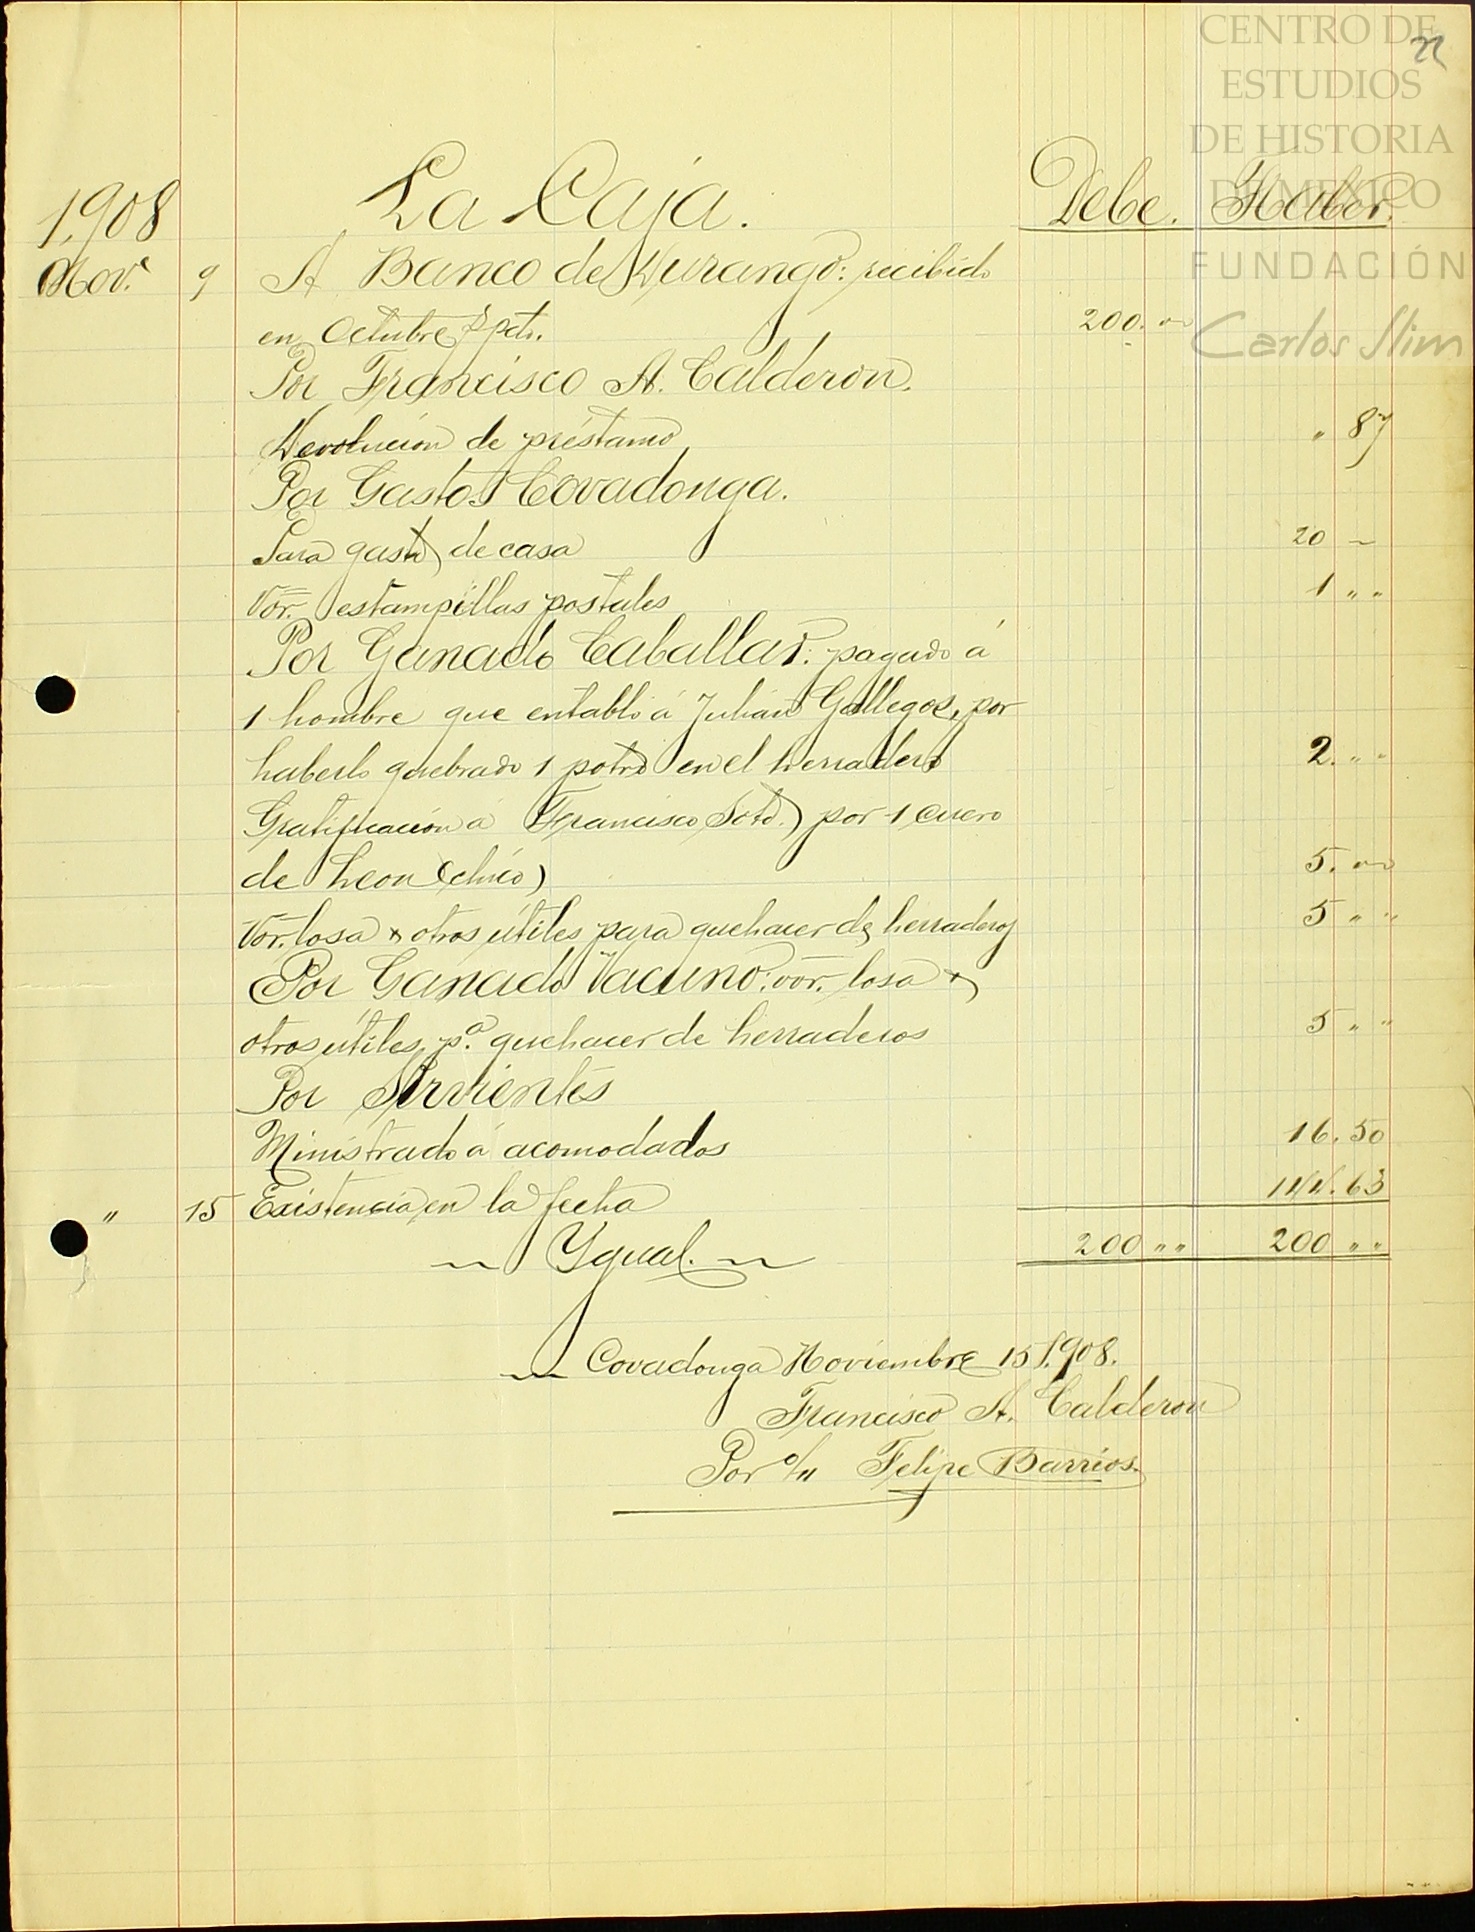 CENTRO DE
ESTUDIOS
DE HISTORIA
DE MEXICO
FUNDACIÓN
Carlos Slim
22
1,908 La Caja. Debe. Haber.
Nov.e 9 A Banco de Durango: recibido
en Octubre ppdo. 200. "
Por Francisco A. Calderon.
Devolucion de préstamo " 87
Por Gastos Covadonga.
Para gasto de casa 20 "
Vor. estampillas postales 1 " "
Por Ganado Caballar: pagado á
1 hombre que entabló á Julián Gallegos, por
haberlo quebrado 1 potro en el herradero 2. " "
Gratificación á Francisco Soto) por 1 cuero
de Leon (chico) 5. "
Vor. losa & otros útiles para quehacer de herraderos 5 " "
Por Ganado Vacuno: vor. losa &
otros útiles p.a quehacer de herraderos 5 " "
Por Sirvientes
Ministrado á acomodados 16.50
" 15 Existencia en la fecha 144.63
Ygual. 200 " " 200 " "
Covadonga Noviembre 15 1.908.
Francisco A. Calderon
Por o/u Felipe Barrios.